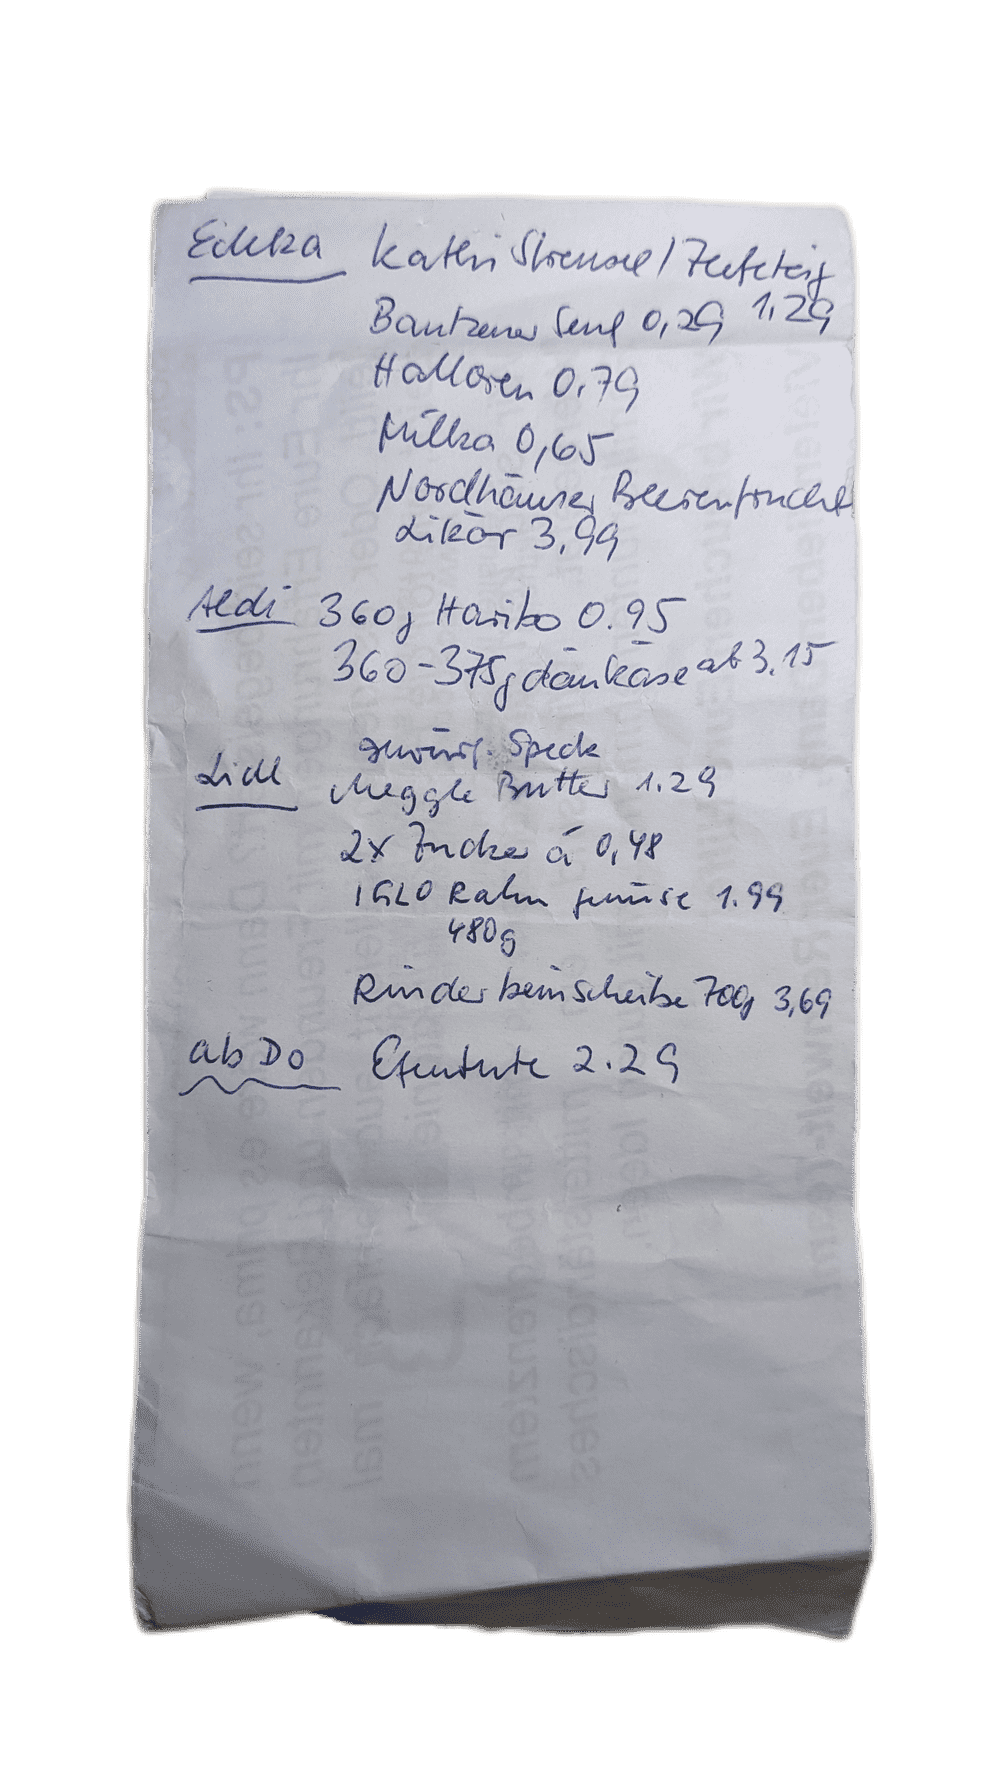 Edeka Kathi Streusel / Hefeteig
Bautzener Senf 0,29 1,29
Halloren 0.79
Milka 0,65
Nordhäuser Beerenfrucht
Likör 3,99
Aldi 360g Haribo 0.95
360-375g dänkäse ab 3.15
gewürf. Speck
Lidl Meggle Butter 1.29
2x Zucker á 0,48
IGLO Rahmgemüse 1.99
480g
Rinderbeinscheibe 700g 3,69
ab Do 2.29